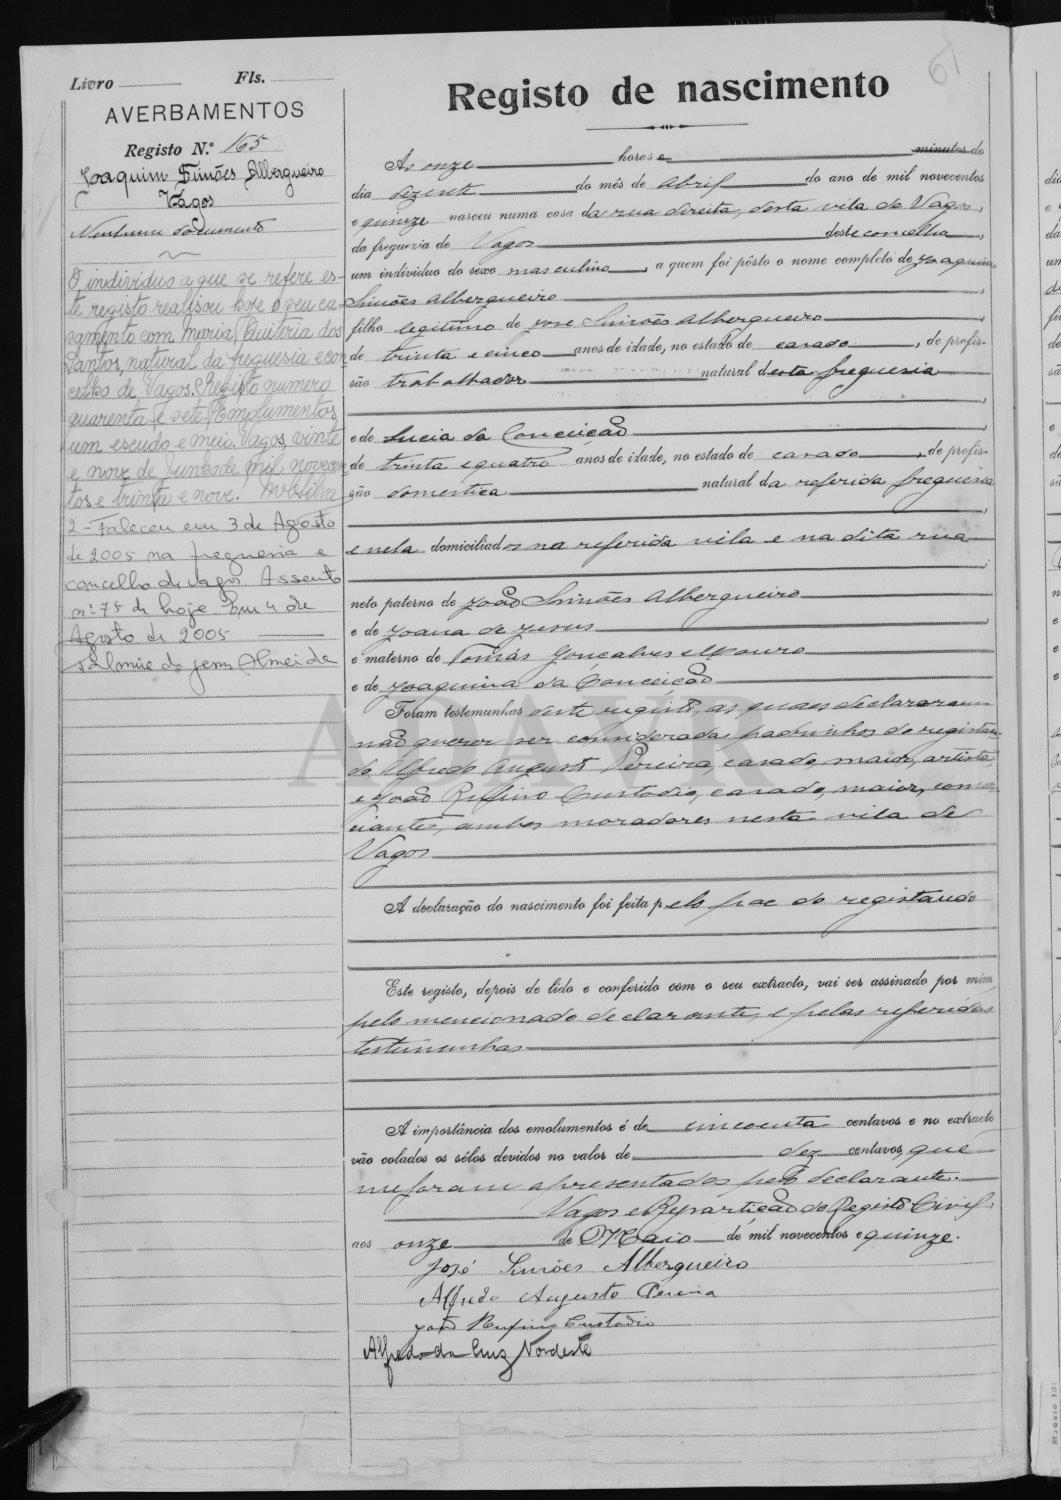 61
Livro Fls.
AVERBAMENTOS
Registo N.º 165
Joaquim Simões Albergueiro
Vagos
Nenhum documento
O individuo a que se refere es-
te registo realisou hoje o seu ca-
samento com Maria Quiteria dos
Santos, natural da freguesia e con
celho de Vagos. Registo numero
quarenta e sete. Emolumentos
um escudo e meio. Vagos, vinte
e nove de Junho de mil novecen
tos e trinta e nove.
2 - Faleceu em 3 de Agosto
de 2005 na freguesia e
concelho de Vagos. Assento
n.º 75 de hoje. Em 4 de
Agosto de 2005
Almeida
Registo de nascimento
Às onze horas e minutos do
dia dezoito do mês de Abril do ano de mil novecentos
e quinze nasceu numa casa da rua direita, desta vila de Vagos,
da freguezia de Vagos deste concelho,
um individuo do sexo masculino, a quem foi pôsto o nome completo de Joaquim
Simões Albergueiro
filho legitimo de José Simões Albergueiro
de trinta e cinco anos de idade, no estado de casado, de profis-
são trabalhador natural desta freguesia
e de Lucia da Conceição
de trinta e quatro anos de idade, no estado de casada, de profis-
são domestica natural da referida freguesia
e nela domiciliados na referida vila e na dita rua
neto paterno de João Simões Albergueiro
e de Joana de Jesus
e materno de Tomás Gonçalves Mouro
e de Joaquina da Conceição
Foram testemunhas deste registo, as quaes declararam
não querer ser consideradas padrinhos do registan-
do Alfredo Augusto Pereira, casado, maior, artista,
e João Rufino Custodio, casado, maior, comer-
ciante, ambos moradores nesta vila de
Vagos
A declaração do nascimento foi feita pelo pae do registando
Este registo, depois de lido e conferido com o seu extracto, vai ser assinado por mim,
pelo mencionado declarante, e pelas referidas
testemunhas
A importância dos emolumentos é de cincoenta centavos e no extracto
vão colados os sêlos devidos no valor de dez centavos, que
me foram apresentados pelo declarante.
Vagos e Repartição do Registo Civil,
aos onze de Maio de mil novecentos e quinze.
José Simões Albergueiro
Alfredo Augusto Pereira
João Rufino Custodio
Alfredo da Cruz Nordeste